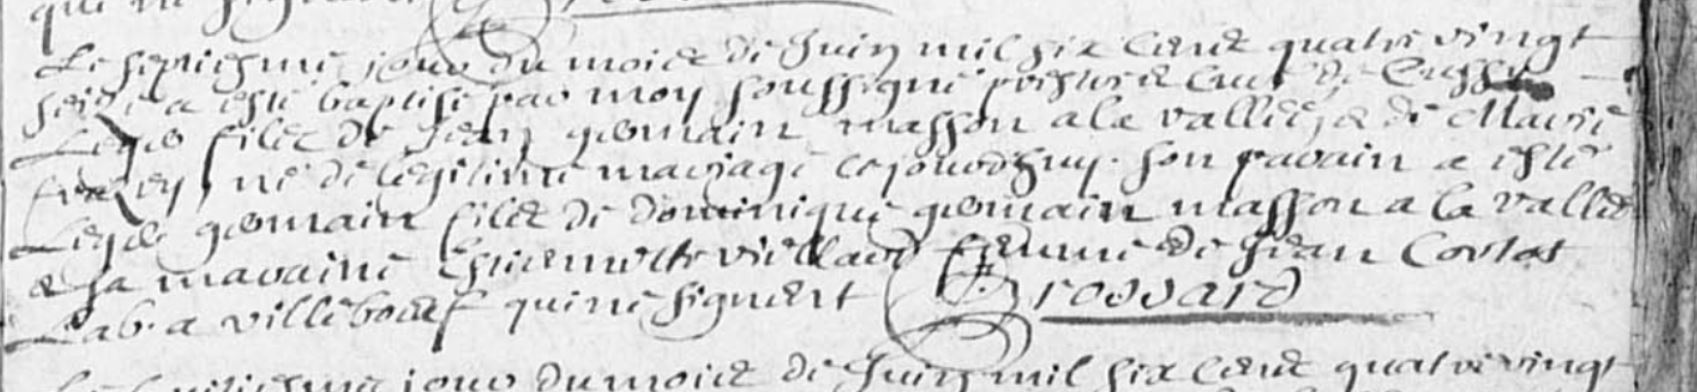 Le septiesme jour du mois de Juin mil six cent quatre vingt
seize a esté baptisé par moy soussigné prestre curé de
fils de Jean germain masson a la vallée, & de Marie
né de legitime mariage ce jourdhuy. son parain a esté
germain fils de dominique germain masson a la vallée
& sa maraine viellard femme de Jean Corlot
Lab. a villeboeuf qui ne signent Drouard
Le huitiesme jour du mois de Juin mil six cent quatre vingt